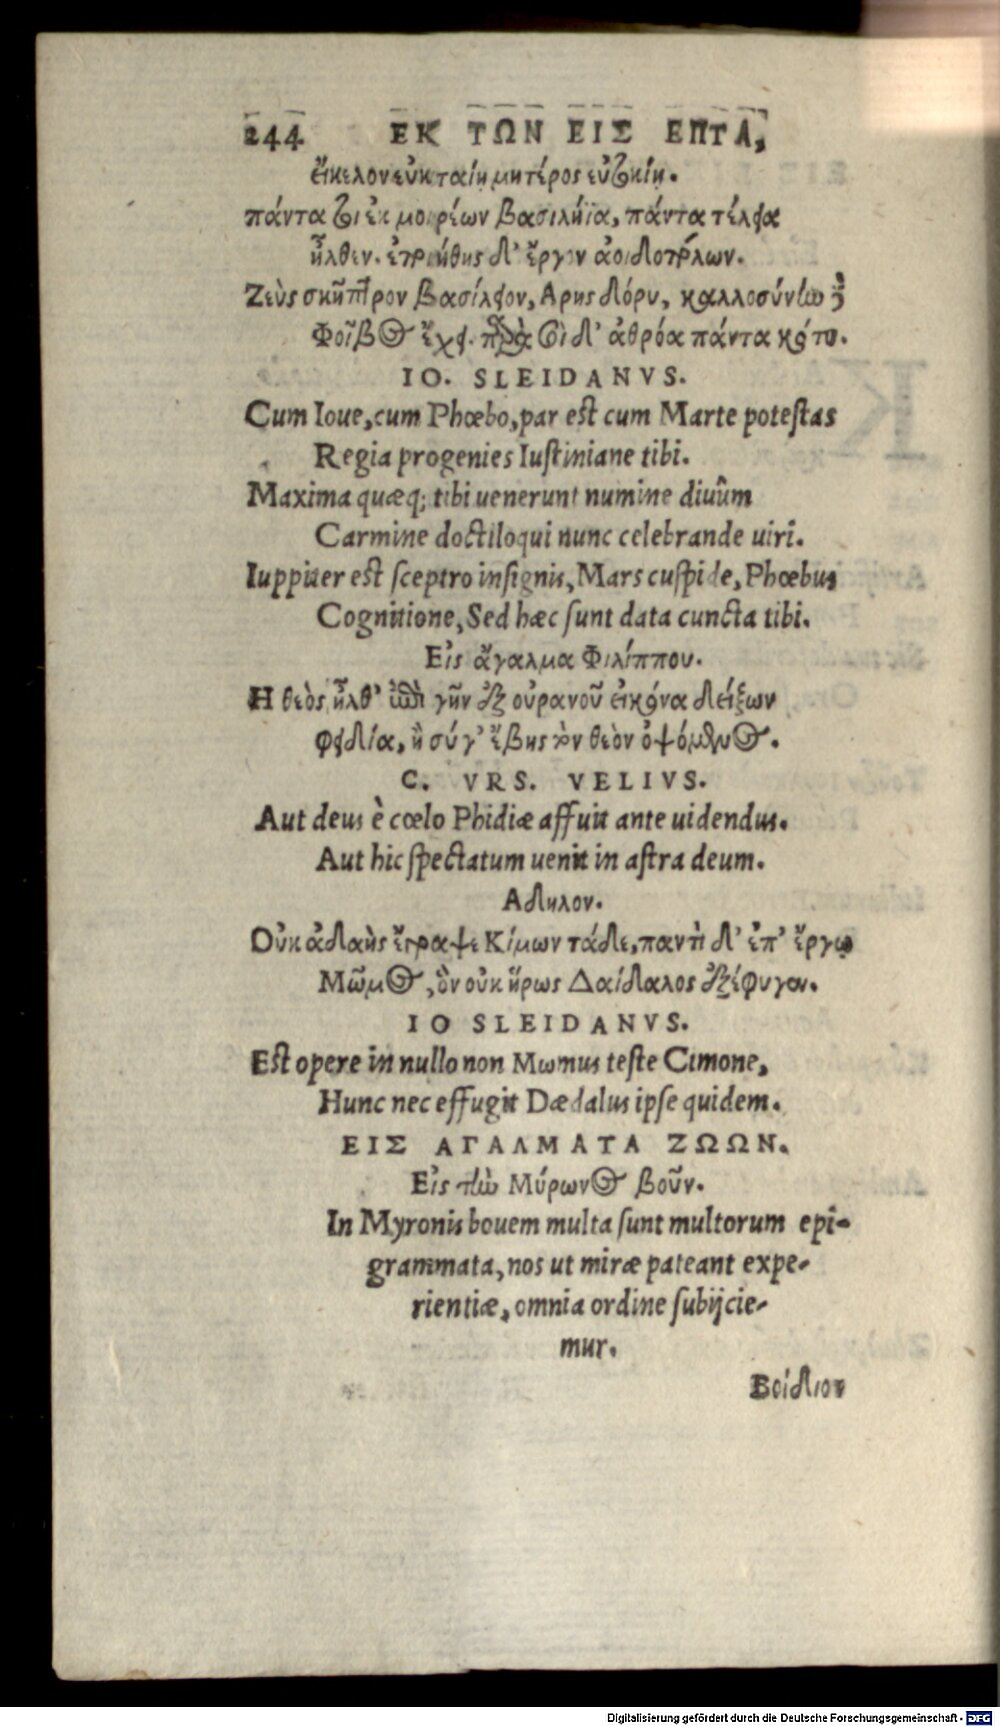 244 ΕΚ ΤΩΝ ΕΙΣ ΕΠΤΑ,
εἴκελον εὐκταίη μητέρος εὐτοκίη.
πάντα τοι ἐκ μοιρέων βασιλήϊα, πάντα τέλεια
ἦλθεν. ἐτρ δ' ἔργον ἀοιδοπόλων.
Ζεὺς σκῆπτρον βασίλειον, Αρης δόρυ, καλλοσύνην δὲ
Φοῖβος ἔχει. παρὰ σοὶ δ' ἀθρόα πάντα
IO. SLEIDANVS.
Cum Ioue, cum Phœbo, par est cum Marte potestas
Regia progenies Iustiniane tibi.
Maxima quæq; tibi uenerunt numine diuûm
Carmine doctiloqui nunc celebrande uiri.
Iuppiter est sceptro insignis, Mars cuspide, Phœbus
Cognitione, Sed hæc sunt data cuncta tibi.
Εἰς ἄγαλμα Φιλίππου.
Η θεὸς ἦλθ' ἐπὶ γῆν ἐξ οὐρανοῦ εἰκόνα δείξων
Φειδία, ἢ σύ γ' ἔβης τὸν θεὸν ὀψόμενος.
C. VRS. VELIVS.
Aut deus è cœlo Phidiæ affuit ante uidendus.
Aut hic spectatum uenit in astra deum.
Αδηλον.
Οὐκ ἀδαὴς ἔγραψε Κίμων τάδε, παντὶ δ' ἐπ' ἔργῳ
Μῶμος, ὃν οὐκ ἥρως Δαίδαλος ἐξέφυγεν.
IO SLEIDANVS.
Est opere in nullo non Mωmus teste Cimone,
Hunc nec effugit Dædalus ipse quidem.
ΕΙΣ ΑΓΑΛΜΑΤΑ ΖΩΩΝ.
Εἰς τὴν Μύρωνος βοῦν.
In Myronis bouem multa sunt multorum epi-
grammata, nos ut miræ pateant expe-
rientiæ, omnia ordine subijcie-
mur.
Βοίδιον
Digitalisierung gefördert durch die Deutsche Forschungsgemeinschaft - DFG